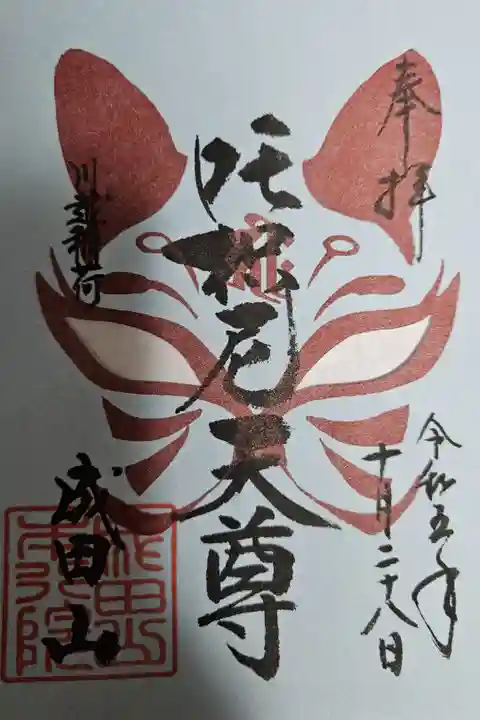 奉拝
令和五年
十月二十八日
吒枳尼天尊
川越稲荷
成田山